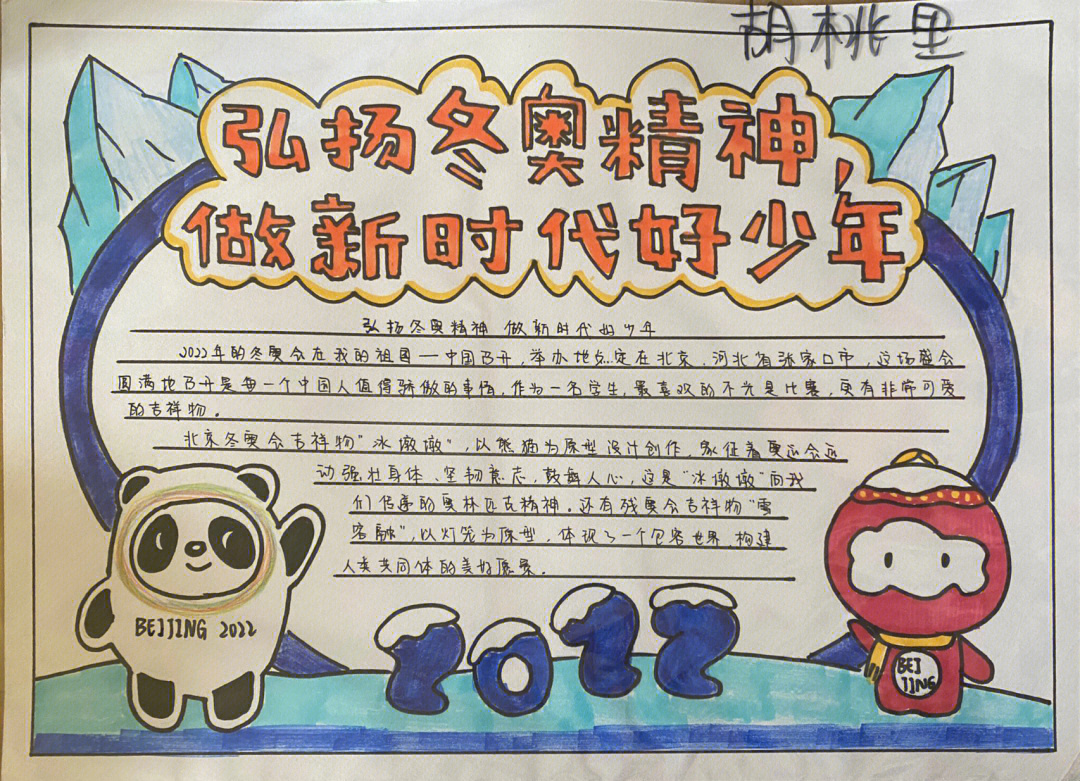 胡桃里
弘扬冬奥精神,
做新时代好少年
弘扬冬奥精神 做新时代好少年
2022年的冬奥会在我的祖国一中国召开,举办地点定在北京、河北省张家口市,这场盛会
圆满地召开是每一个中国人值得骄傲的事情,作为一名学生,最喜欢的不光是比赛,更有非常可爱
的吉祥物。
北京冬奥会吉祥物"冰墩墩",以熊猫为原型设计创作,象征着奥运会运
动强壮身体、坚韧意志,鼓舞人心,这是"冰墩墩"向我
们传递的奥林匹克精神。还有残奥会吉祥物"雪
容融",以灯笼为原型,体现了一个包容世界,构建
人类共同体的美好愿景。
BEIJING 2022
2022
BEI
JING